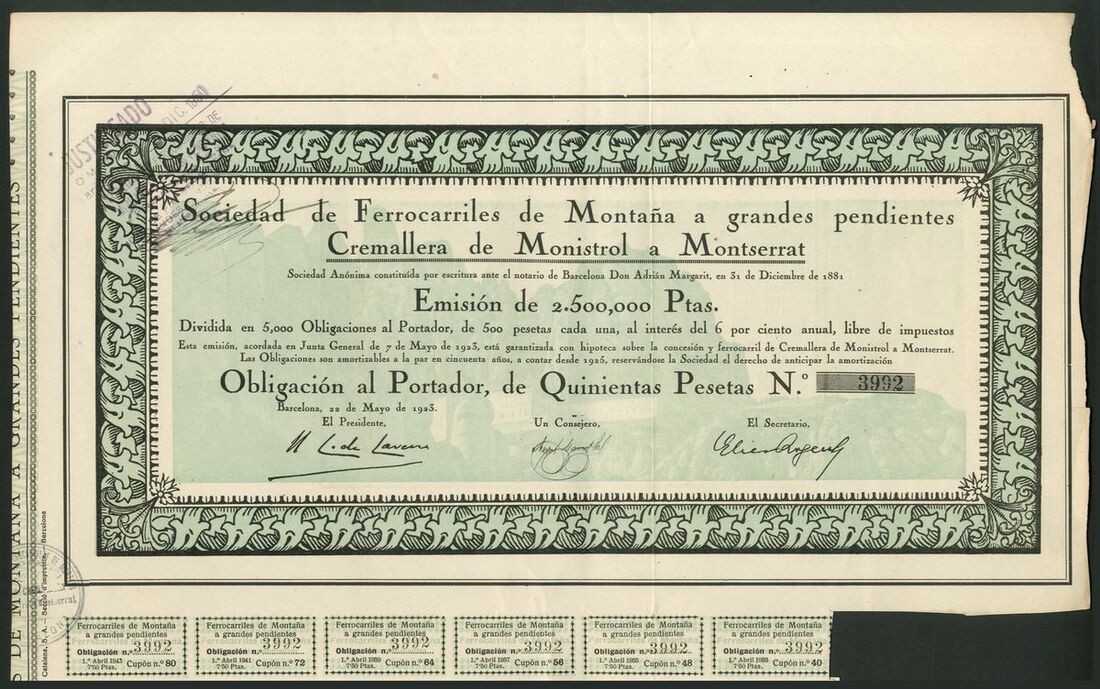 JUSTIFICADO
DIC. 1950
Sociedad de Ferrocarriles de Montaña a grandes pendientes
Cremallera de Monistrol a Montserrat
Sociedad Anónima constituída por escritura ante el notario de Barcelona Don Adrián Margarit, en 31 de Diciembre de 1881
Emisión de 2.500,000 Ptas.
Dividida en 5,000 Obligaciones al Portador, de 500 pesetas cada una, al interés del 6 por ciento anual, libre de impuestos
Esta emisión, acordada en Junta General de 7 de Mayo de 1923, está garantizada con hipoteca sobre la concesión y ferrocarril de Cremallera de Monistrol a Montserrat.
Las Obligaciones son amortizables a la par en cincuenta años, a contar desde 1925, reservándose la Sociedad el derecho de anticipar la amortización
Obligación al Portador, de Quinientas Pesetas N.º 3992
Barcelona, 22 de Mayo de 1923.
El Presidente, Un Consejero, El Secretario,
S DE MONTAÑA A GRANDES PENDIENTES
Catalana, S. A. – Secció d'impremta. – Barcelona
Ferrocarriles de Montaña
a grandes pendientes
Obligación n.º 3992
1.º Abril 1943
7'50 Ptas. Cupón n.º 80
Ferrocarriles de Montaña
a grandes pendientes
Obligación n.º 3992
1.º Abril 1941
7'50 Ptas. Cupón n.º 72
Ferrocarriles de Montaña
a grandes pendientes
Obligación n.º 3992
1.º Abril 1939
7'50 Ptas. Cupón n.º 64
Ferrocarriles de Montaña
a grandes pendientes
Obligación n.º 3992
1.º Abril 1937
7'50 Ptas. Cupón n.º 56
Ferrocarriles de Montaña
a grandes pendientes
Obligación n.º 3992
1.º Abril 1935
7'50 Ptas. Cupón n.º 48
Ferrocarriles de Montaña
a grandes pendientes
Obligación n.º 3992
1.º Abril 1933
7'50 Ptas. Cupón n.º 40